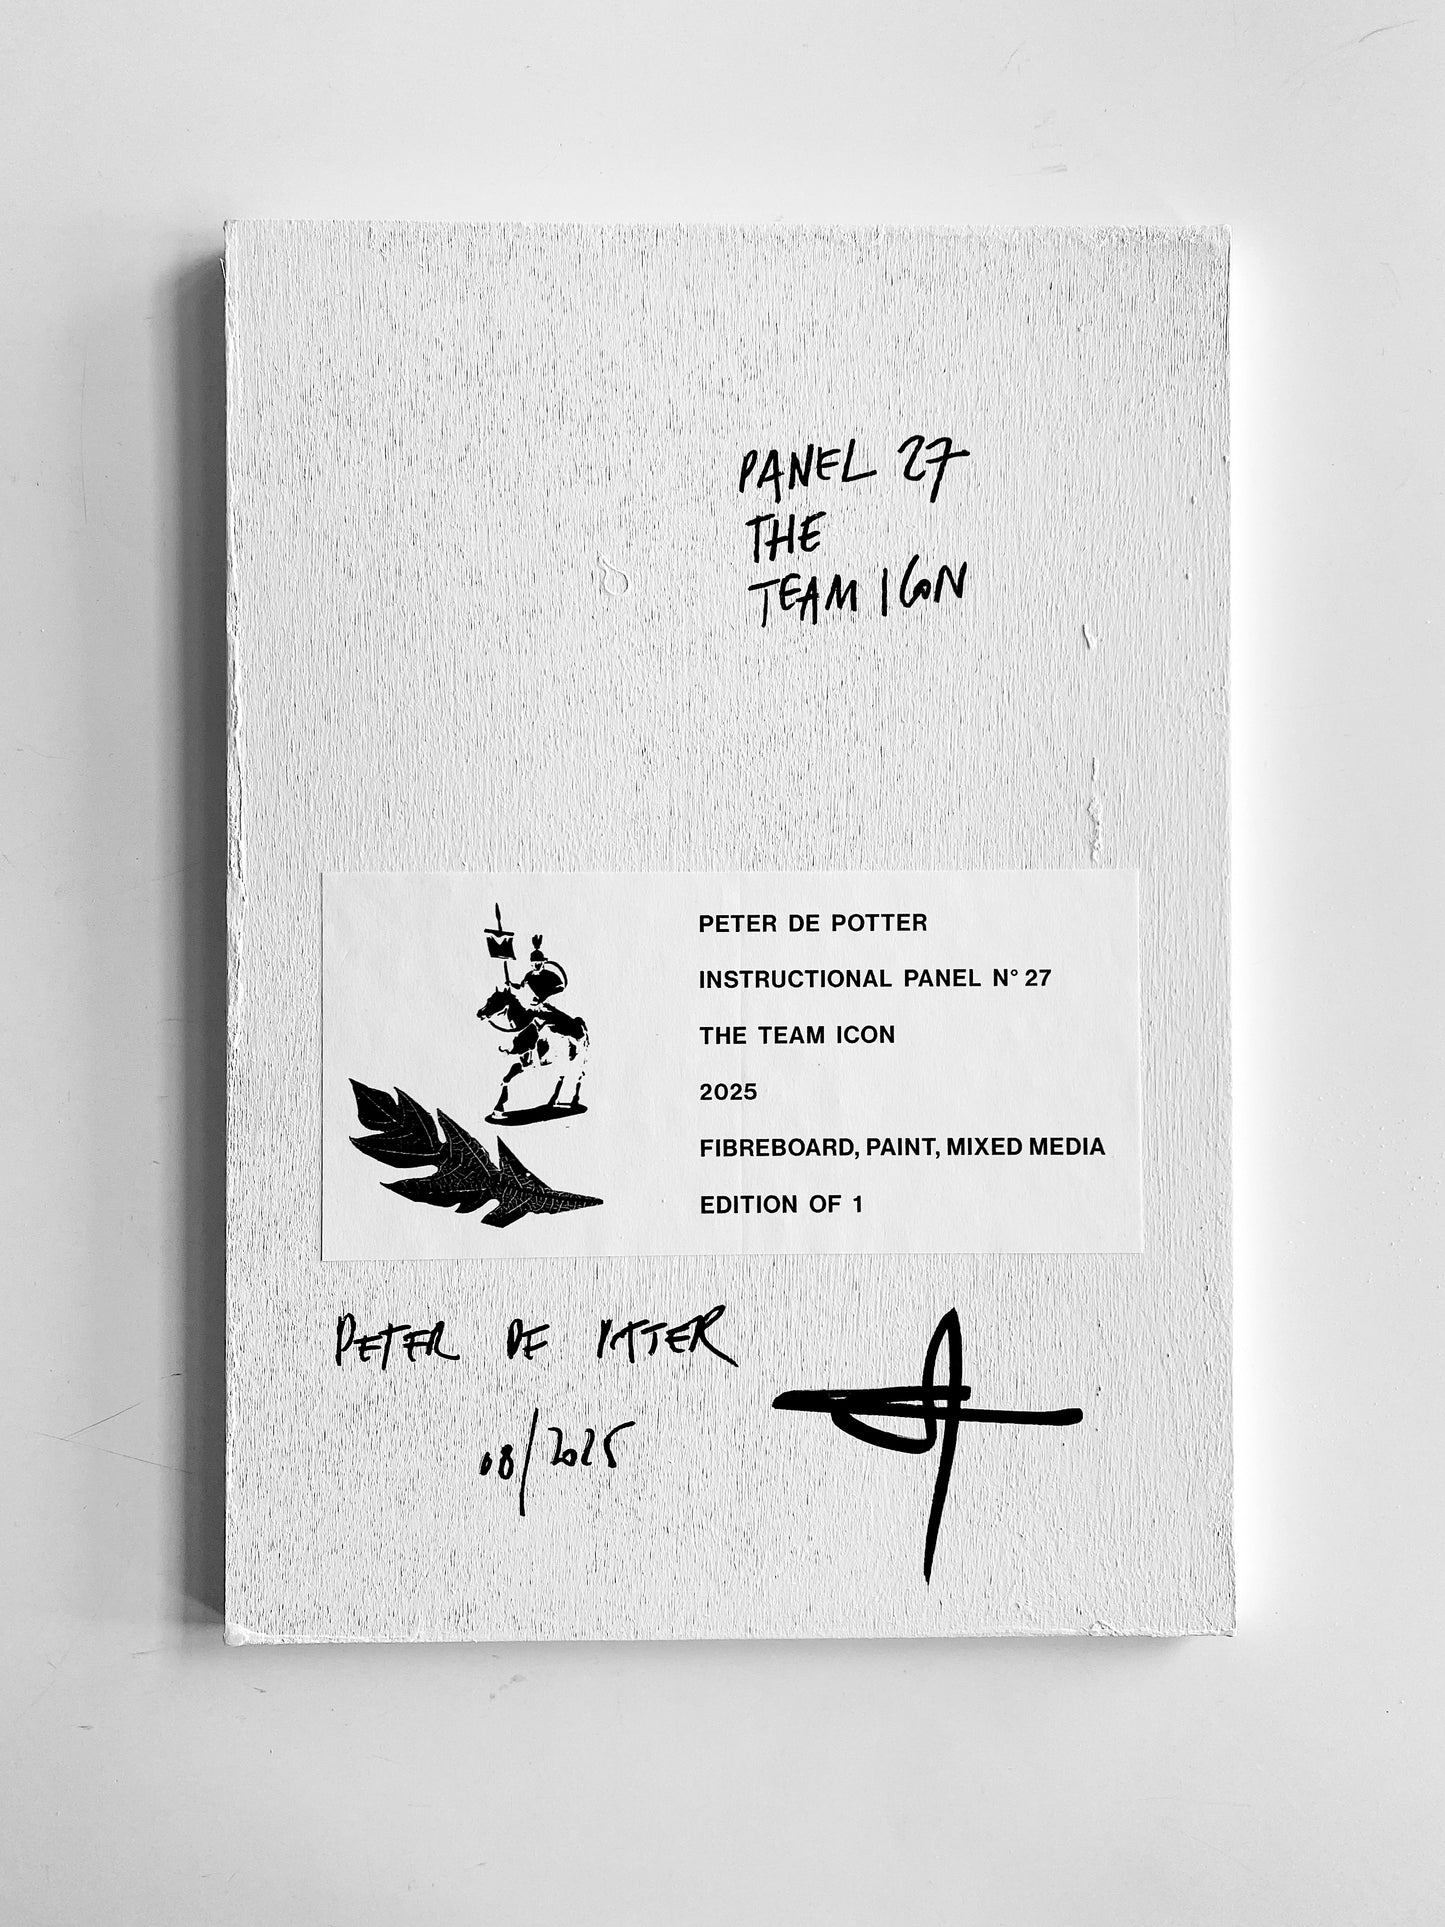 PANEL 27
THE
TEAM ICON
PETER DE POTTER
INSTRUCTIONAL PANEL N° 27
THE TEAM ICON
2025
FIBREBOARD, PAINT, MIXED MEDIA
EDITION OF 1
PETER DE POTTER
08/2025